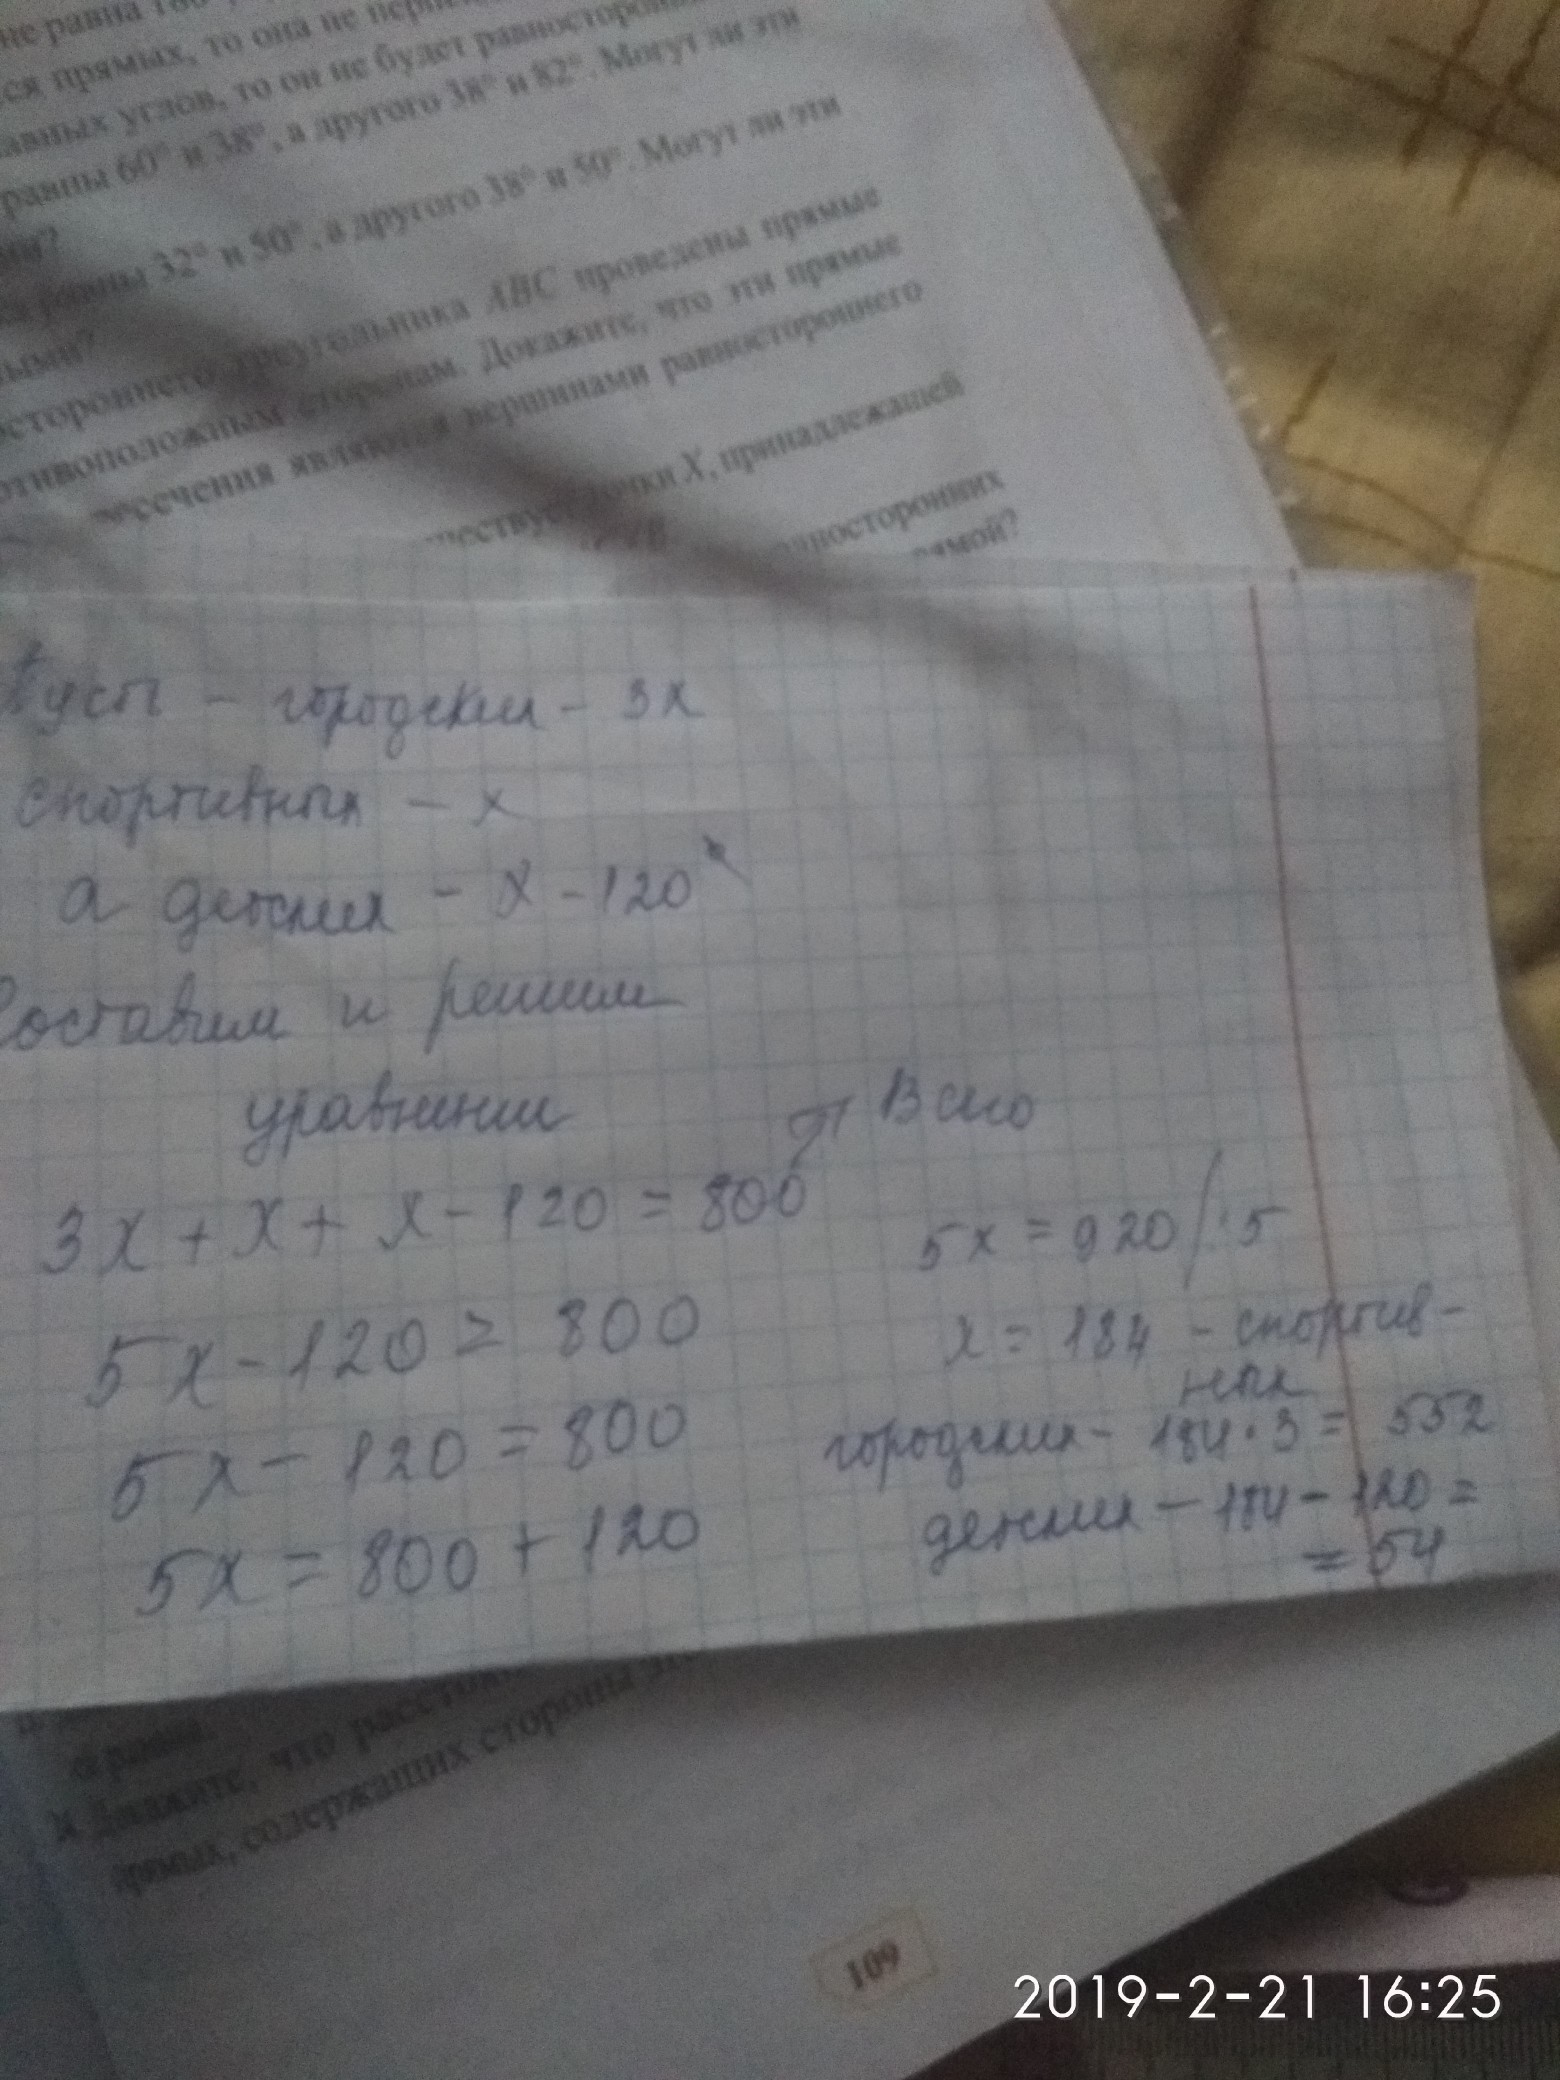 не равна 180°
ся прямых, то она не
авных углов, то он не будет
равны 60° и 38°, а другого 38° и 82°. Могут ли эти
равны 32° и 50°, а другого 38° и 50°. Могут ли эти
ными?
стороннего треугольника ABC проведены прямые
отивоположным сторонам. Докажите, что эти прямые
ресечения являются вершинами равностороннего
точки X, принадлежащей
вносторонних
ямой?
Пусть - городских - 3x
спортивных - x
а детских - x - 120
Составим и решим
уравнении
Всего
3x + x + x - 120 = 800
5x - 120 = 800
5x - 120 = 800
5x = 800 + 120
5x = 920 / : 5
x = 184 - спортив-
ных
городских - 184 · 3 = 552
детских - 184 - 120 =
= 54
Докажите, что
прямых, содержащих стороны
109
2019-2-21 16:25